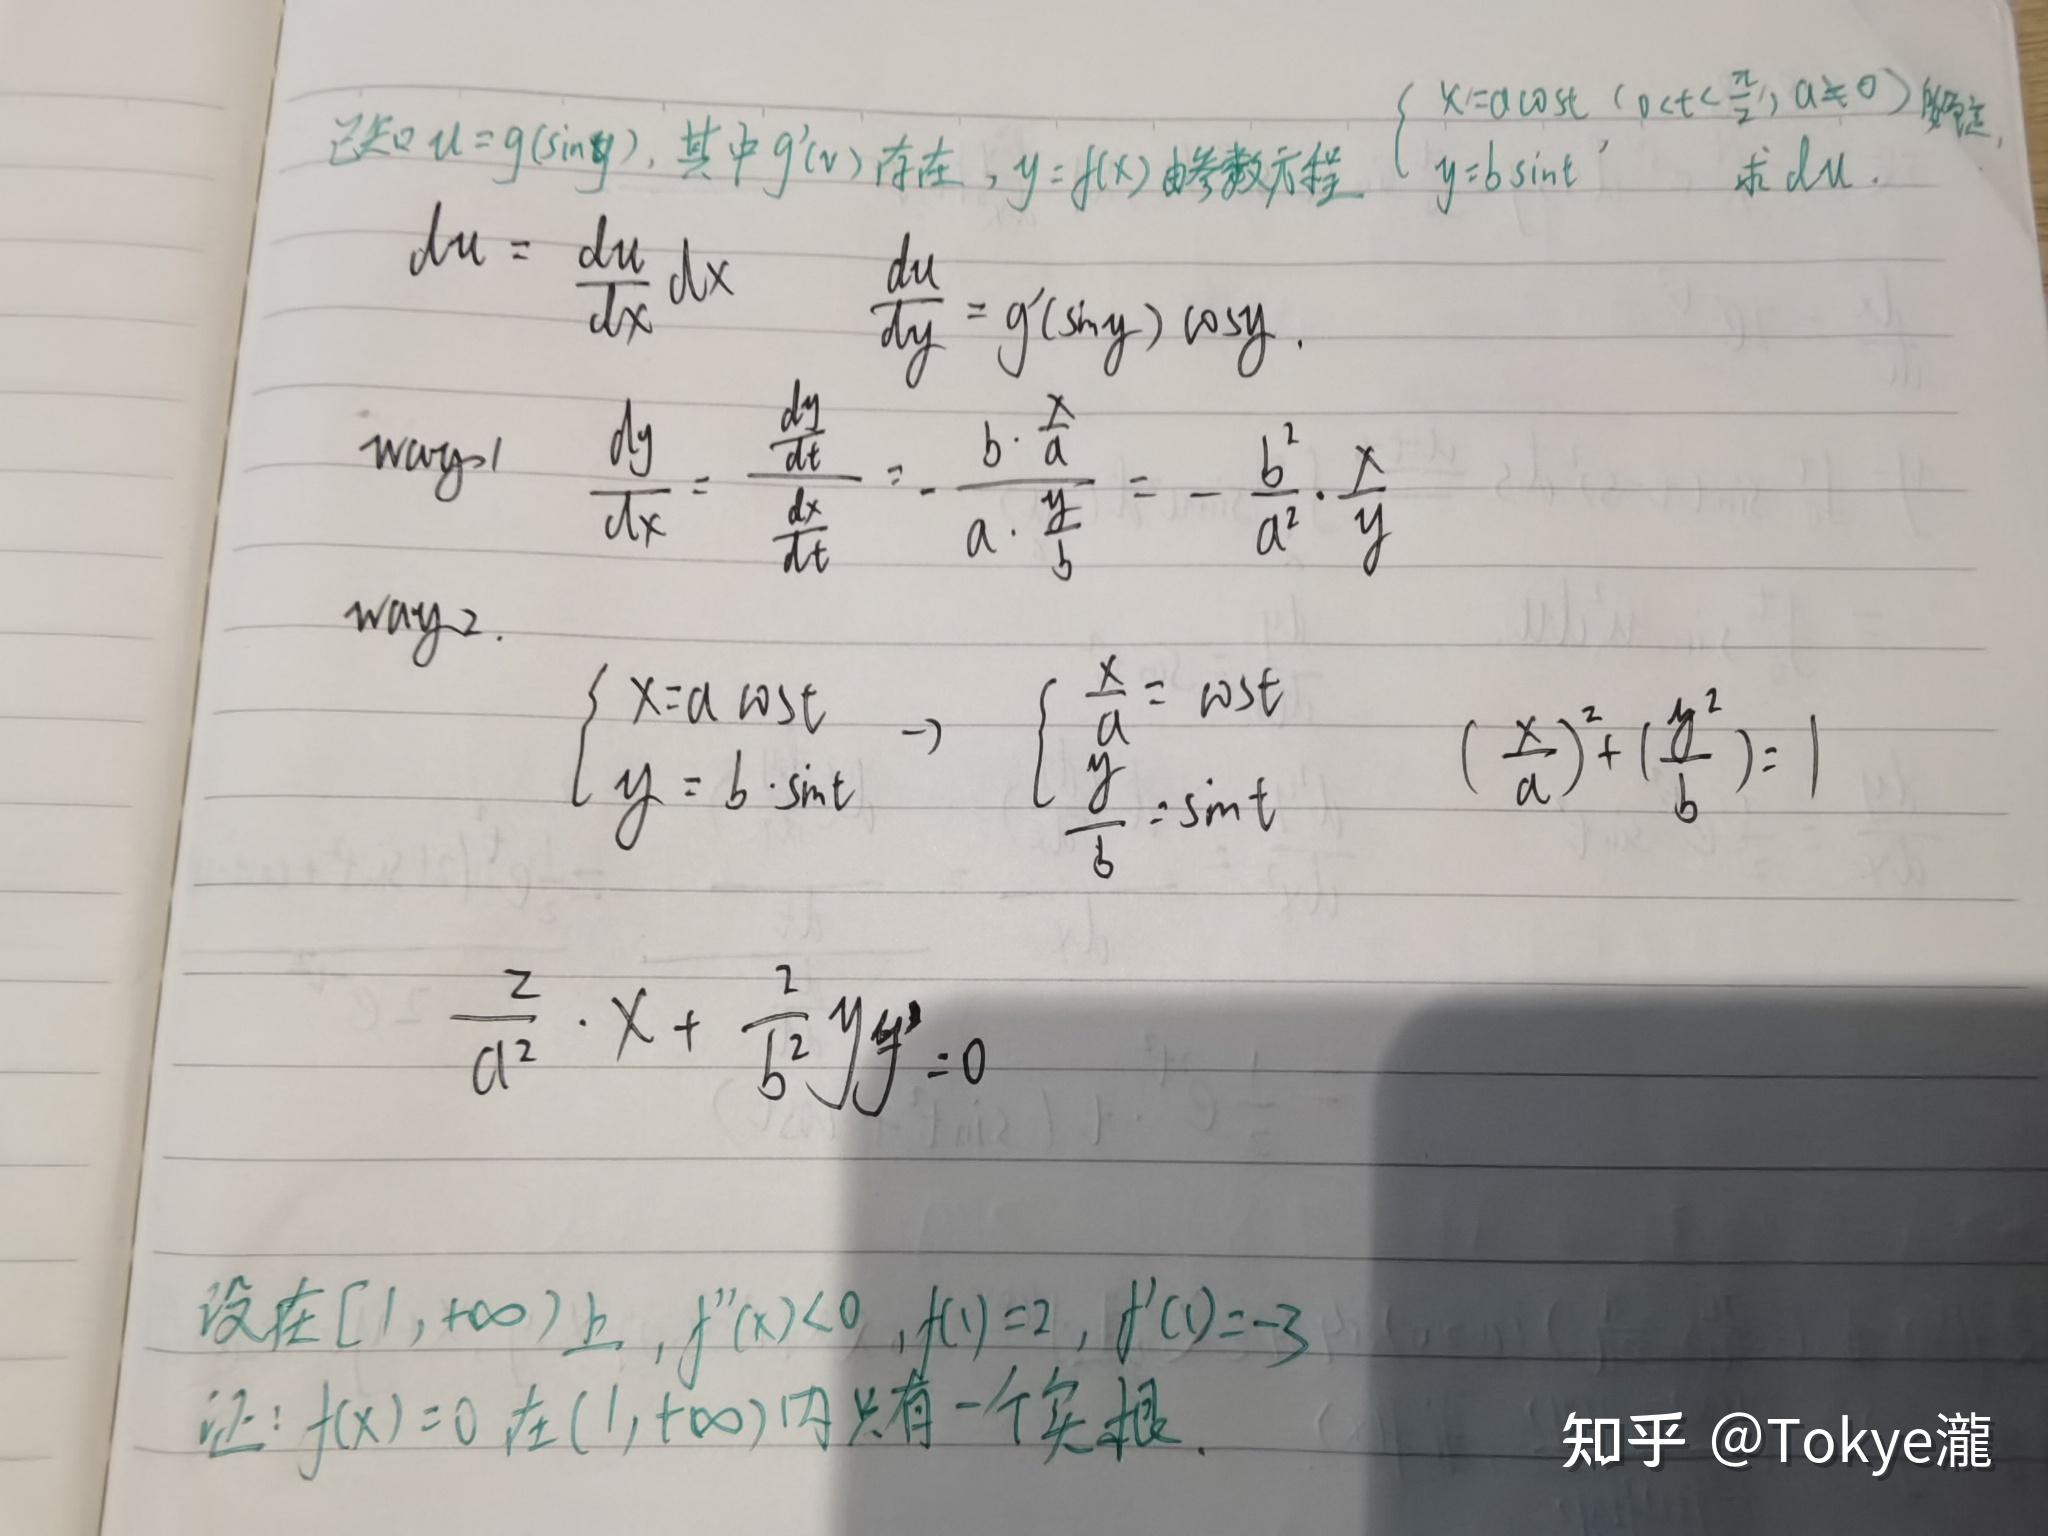 已知 u = g(siny), 其中 g'(v) 存在, y = f(x) 由参数方程 { x = a cost (0<t<π/2, a≠0), y = b sint 求 du.
du = du/dx dx    du/dy = g'(siny) cosy.
way1  dy/dx = (dy/dt)/(dx/dt) = - (b · x/a)/(a · y/b) = - b²/a² · x/y
way2.
{ x = a cost, y = b · sint → { x/a = cost, y/b = sint    (x/a)² + (y²/b) = 1
2/a² · x + 2/b² yy' = 0
设在 [1, +∞) 上, f''(x)<0, f(1)=2, f'(1)=-3
证: f(x)=0 在 (1, +∞) 内只有一个实根.
知乎 @Tokye瀧